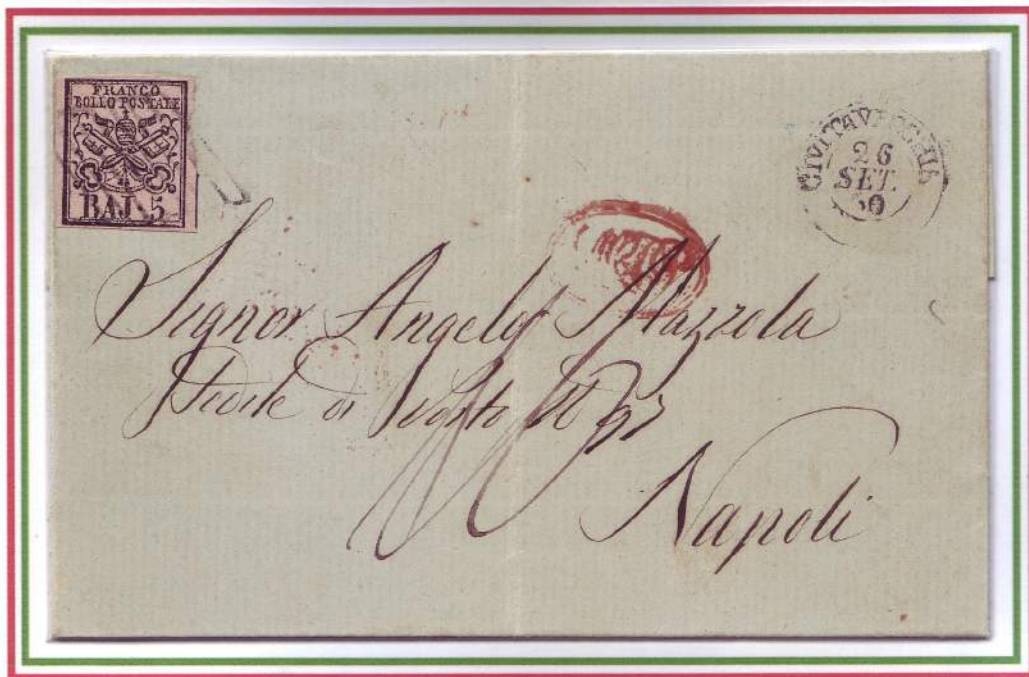 FRANCO
BOLLO POSTALE
BAJ. 5
CIVITAVECCHIA
26
SET.
60
Signor Angelo Mazzola
Sedile di Porto N° 93
Napoli